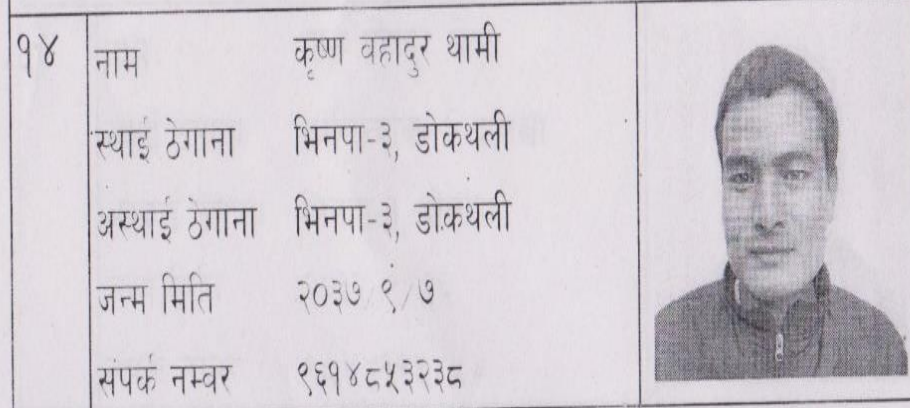 १४
नाम कृष्ण वहादुर थामी
स्थाई ठेगाना भिनपा-३, डोकथली
अस्थाई ठेगाना भिनपा-३, डोकथली
जन्म मिति २०३७/९/७
संपर्क नम्वर ९६१४८५३२३८